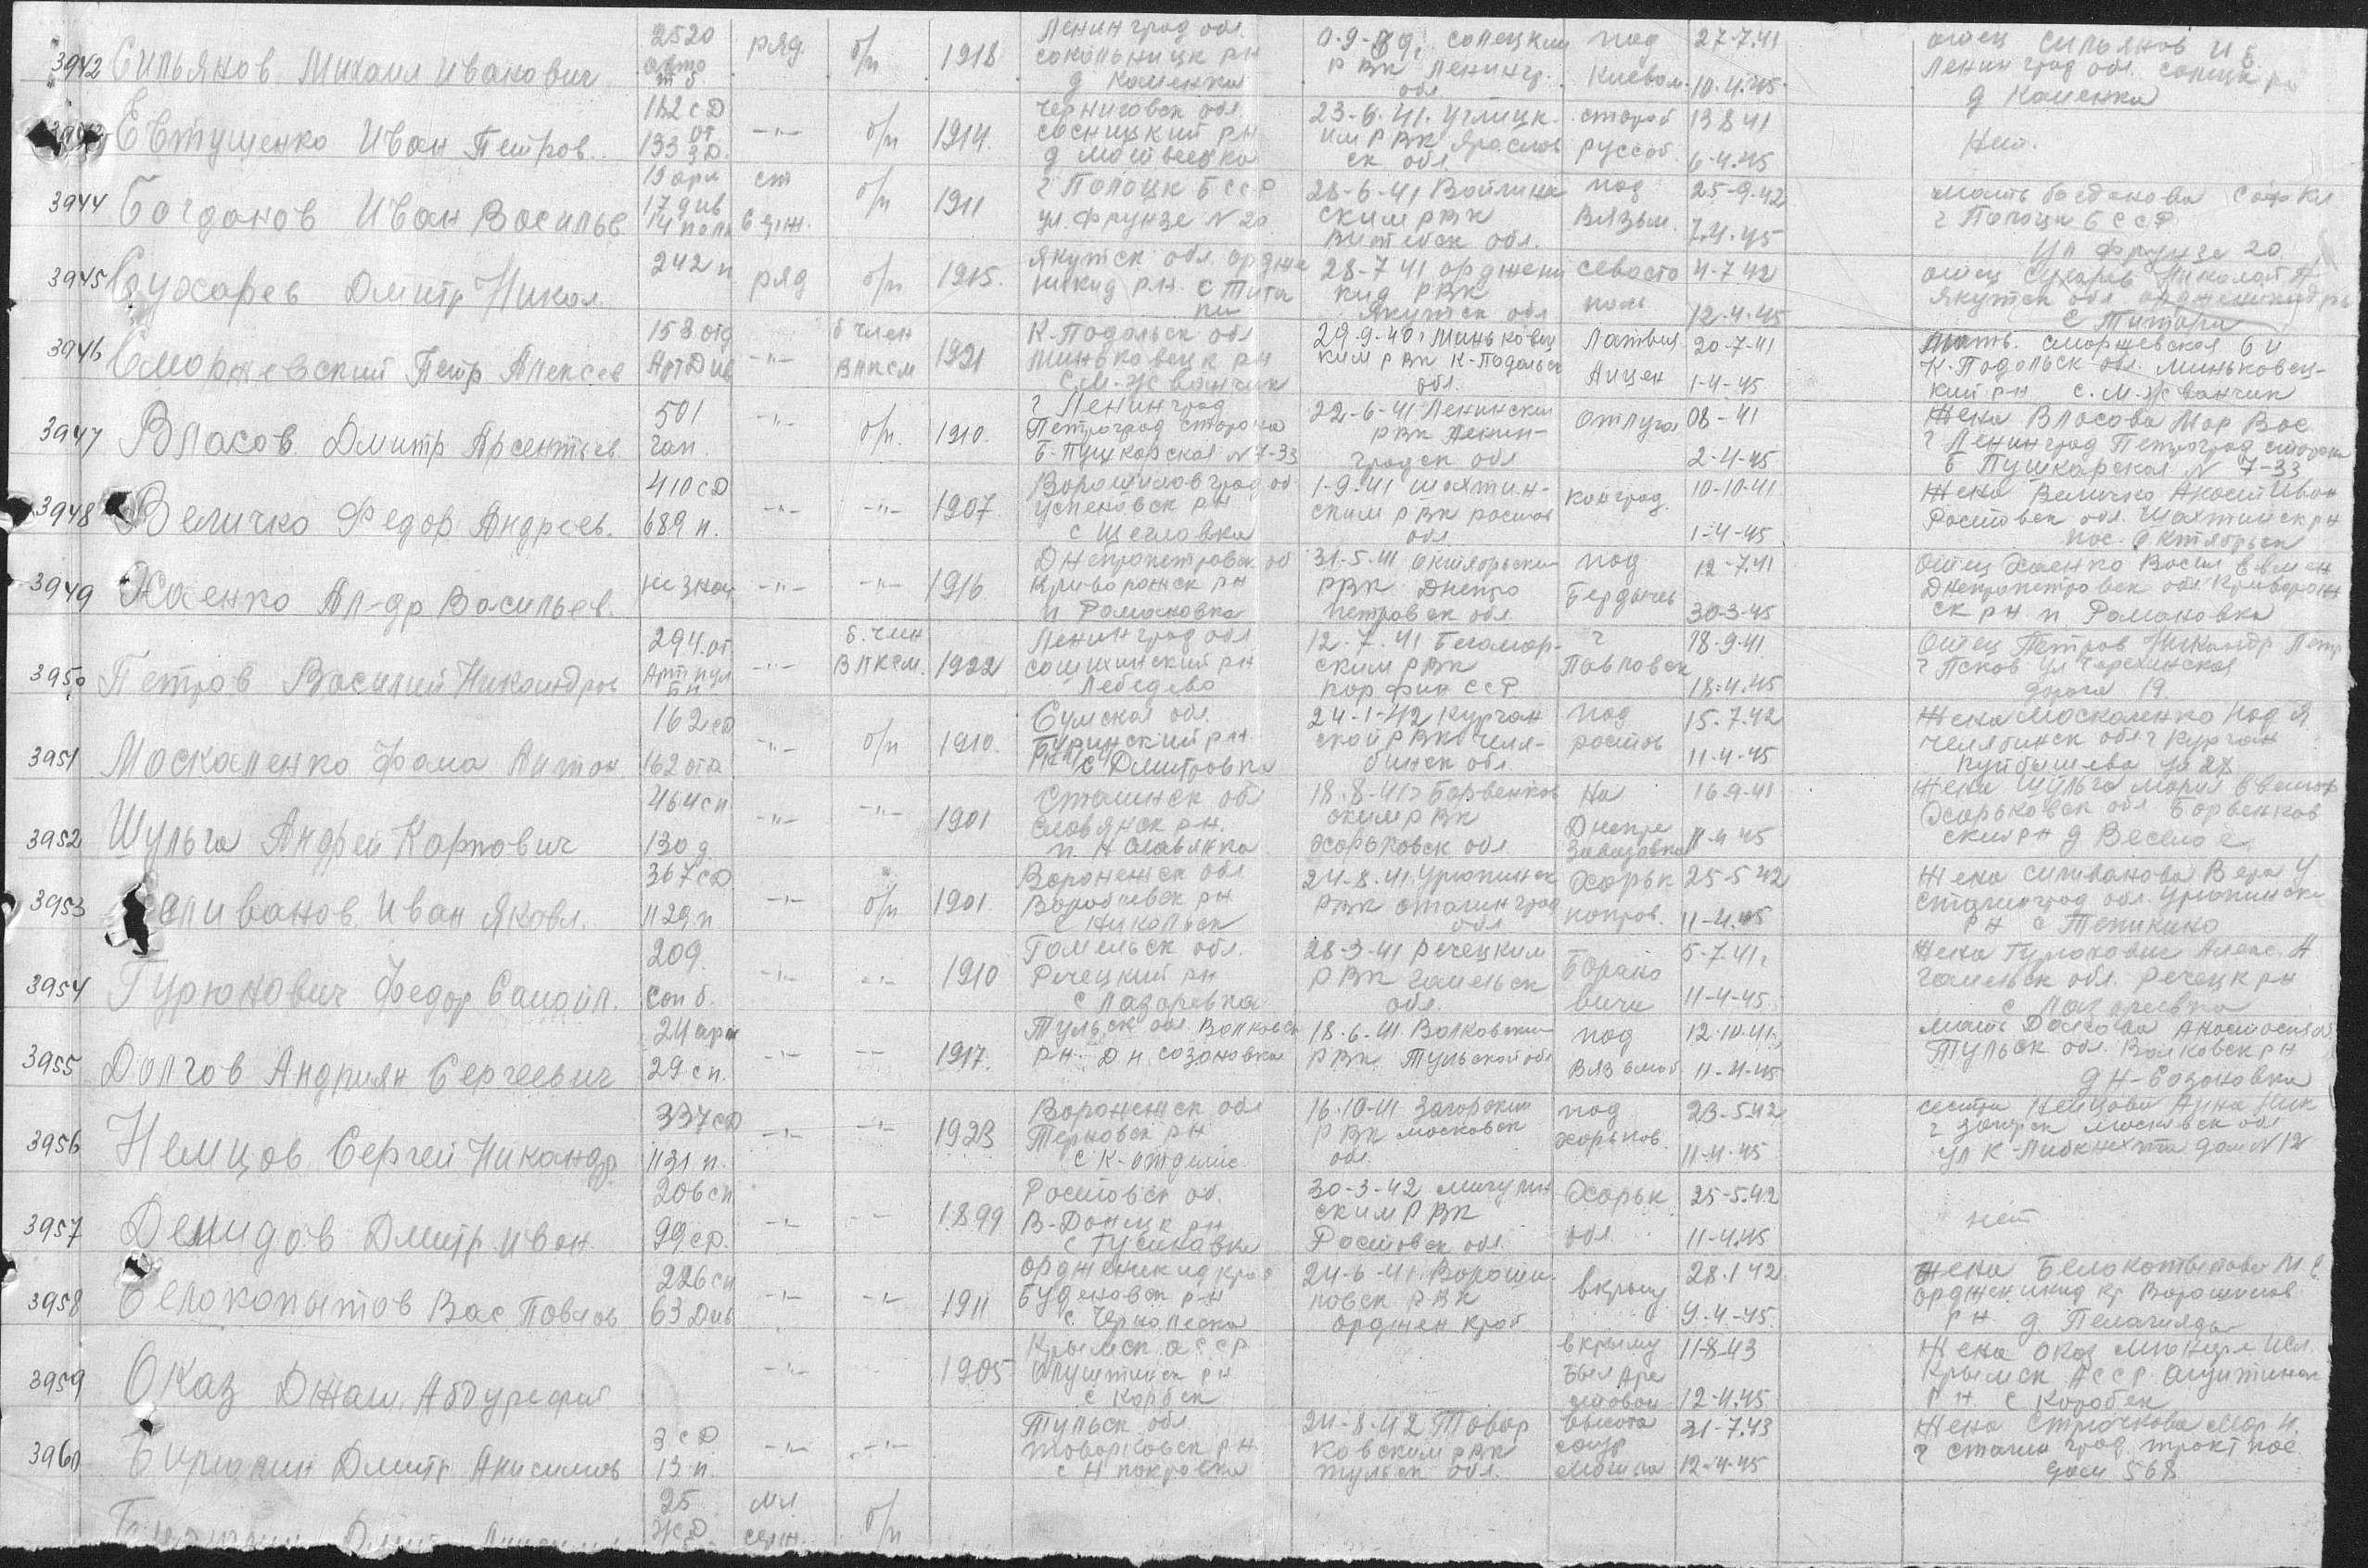 3942 Сильянов Михаил Иванович 2520 авто т б ряд. б/п 1918 Ленинград обл. сокольницк рн д Каменка солецким РВК Ленингр. обл под Киевом 27-7.41 10.4.45 отец Сильянов И Е Ленинград обл. солецк рн д Каменка
Евтушенко Иван Петров. 182 сд 133 от З.Д. -"- б/п 1914. Черниговск обл. сосницкий рн д Матвеевка 23-6.41. Углицк им РВК Ярослов ск обл староб русса. 13 8 41 6-4.45 Нет.
3944 Богданов Иван Василье 19 арм 17 див 14 полк ст б/п 1911 г Полоцк БССР ул. Фрунзе N 20 28-6-41 ским РВК Витебск обл. под Вязьм. 25-9.42 7.4.45 мать Богданова г Полоцк БССР Ул Фрунзе 20
3945 Сухарев Дмитр Никол. 242 п ряд б/п 1915. Якутск обл. ордже никид р.н. с Тита ри 28-7 41 орджени кид РВК Якутск обл севасто поль 4-7.42 12.4.45 отец Сухарев Николай А Якутск обл. орджникид рн с Титари
3946 Сморжевский Петр Алексее 158 отд Арт Див -"- б член ВЛКСМ 1921 К-Подольск обл Миньковецк рн с.М-Жванчик 29.9-40г Миньковец ким РВК К-Подольск обл. Латвия 20-7-41 1-4-45 мать. сморжевская К-Подольск обл. Миньковец- кий рн с.М-Жванчик
3947 Власов Дмитр Арсентьев. 501 гап. -"- б/п. 1910. г Ленинград Петроград сторона Б-Пушкарская N 7-33 22-6-41 Ленинским РВК Ленин- градск обл от луга 08-41 2-4-45 Жена Власова Мар Вас. г Ленинград Петроград сторона Б Пушкарская N 7-33
3948 Величко Федор Андреев. 410 сд 689 п. -"- -"- 1907. Ворошиловград об успеновск рн с Щегловка 1-9.41 шахтин- ским РВК ростов обл 10-10-41 1-4-45 Жена Величко Анаст Иван Ростовск обл. Шахтинск рн пос. Октябрьск
3949 Хаенко Ал-др Васильев. не знает -"- -"- 1916 Днепропетровск об Криворожск рн п Романовка 31-5.41 октябрьским РВК Днепро петровск обл под Бердичев 12-7.41 30-3-45 Отец Хаенко Васил Днепропетровск обл Криворож ск рн п Романовка
3950 Петров Василий Никандров 294. от Арт пул б п -"- б. член ВЛКСМ. 1922 Ленинград обл сошихинский рн Лебедево 12-7.41 Беломор- ским РВК кар фин ССР г Павловск 18-9.41 18-4.45 Отец Петров Никандр Петр г Псков ул Черехинская дорога 19.
3951 Москаленко Фома Антон 162 сд 162 отд -"- б/п 1910. Сумская обл. Буринский рн. с Дмитровка 24-1-42 Курган ской РВК Челя- бинск обл под ростов 15.7.42 11-4-45 Жена Москаленко Над Я Челябинск обл г Курган Куйбышева ул 28
3952 Шульга Андрей Карпович 464 сп 130 д -"- -"- 1901 Сталинск об Славянск рн. п. Н Славянка 18.8-41г Барвенков ским РВК Харьковск обл На Днепре 16 9-41 11-4 45 Жена Шульга Мария Харьковск обл Барвенков ский рн д Веселое
3953 Иван Яковл. 367 сд 1129 п -"- б/п 1901 Воронежск обл Воробьевск рн с Никольск 24-8.41 Урюпинск РВК сталинград обл Харьк. 25-5 42 11-4.45 Жена Селиванова Вера У сталинград обл. Урюпинск рн с Тепикино
3954 Гурюнович Федор Самойл. 209 сап б. -"- -"- 1910 Гомельск обл. Речецкий рн с Лазаревка 28-3-41 Речецким РВК гомельск обл. Барано вичи 5-7.41г 11-4-45 Жена Гурюнович Алекс. А гомельск обл. Речецк рн с Лазаревка
3955 Долгов Андриян Сергеевич 24 арм 29 сп. -"- -- 1917. Тульск обл Волковск рн. Д Н. созоновка 18.6.41. Волковским РВК. Тульской обл под Вязьмой 12-10.41. 11-4-45 мать Долгова Анастасия Тульск обл. Волковск рн д Н-Созоновка
3956 Немцов Сергей Никандр. 337 сд 1131 п. -"- -"- 1923 Воронежск обл Терновск рн с К-отделис 16.10-41 Загорским РВК московск обл. под харьков. 23-5.42 11-4-45 сестра Немцова Анна Ник г Загорск московск обл ул К-Либкнехта дом N 12
3957 Демидов Дмитр Иван. 206 сп 99 ср. -"- -- 1899 Ростовск об. В-Донецк рн с Гусиновка 30-3-42 мигулин ским РВК Ростовск обл. Харьк обл 25-5.42 11-4.45 нет
3958 Белокопытов Вас. Павлов 226 сп 63 Див -"- -"- 1911 Орджникид край Буденовск р-н с Чернолеска 24-6-41. Вороши- ловск РВК орджен край в крыму 28.1 42 9.4-45. Жена Белокопытова М.С. орджникид кр Ворошилов рн д Пелагияда
3959 Оказ Джаш. Абдурефий -"- 1905 Крымск АССР Алуштинск рн с Корбек в крыму 11-8-43 12-4.45 Жена Оказ Крымск АССР Алуштинск рн. с Корбек
3960 Бирюкин Дмитр Анисимов 3 сд 13 п. -"- -"- Тульск обл товарковск рн. с Н покровка 24-8-42 Товар ковским РВК тульск обл. Высота саур могила 31-7.43 12-4-45 Жена Стрючкова Мар И. г сталинград тракт пос дом 568
25 мл серж. б/п